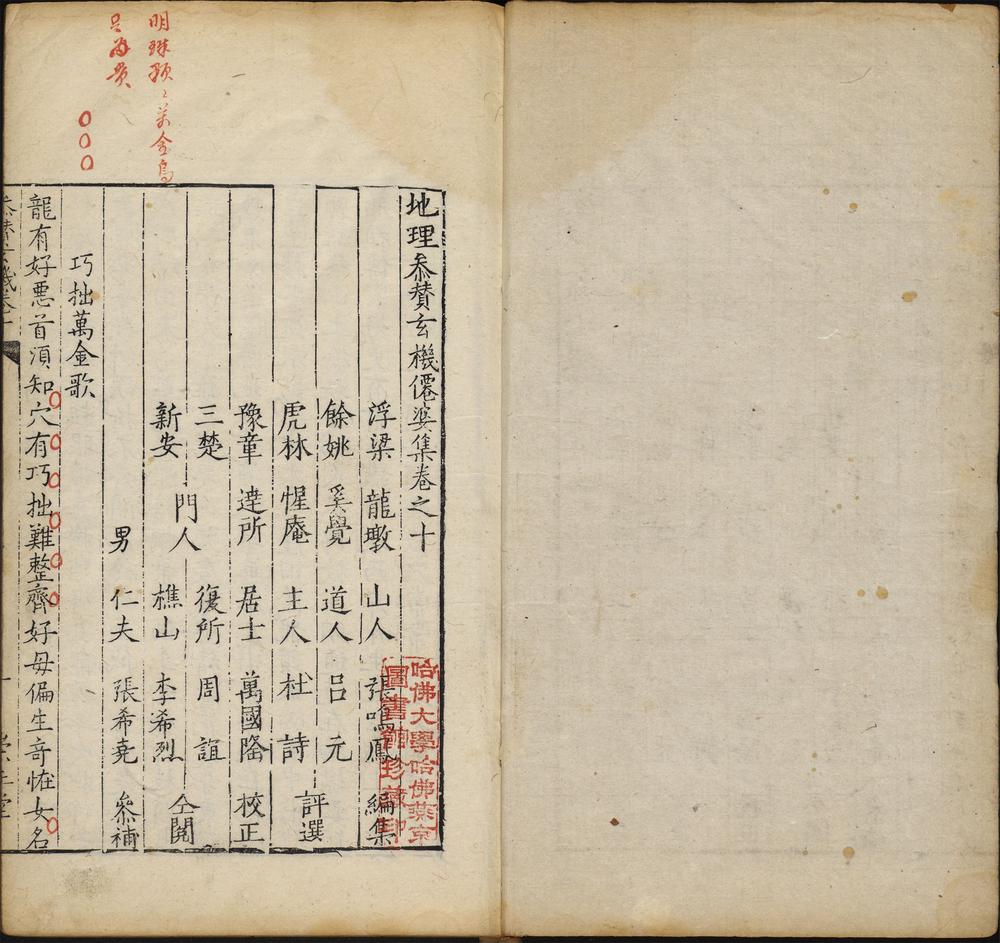 地理叅賛玄機僊婆集卷之十
浮梁 龍墩 山人 張鳴鳳 編集
餘姚 奚覺 道人 呂元
虎林 惺庵 主人 杜詩
評選
豫章 達所 居士 萬國隆 校正
三楚
新安
門人
復所 周誼
樵山 李希烈
仝閱
男 仁夫 張希堯 叅補
巧拙萬金歌
龍有好悪首湏知穴有巧拙難整齊好毋偏生竒恠女名
哈佛大學哈佛燕京
圖書館珍藏印
明珠
只為